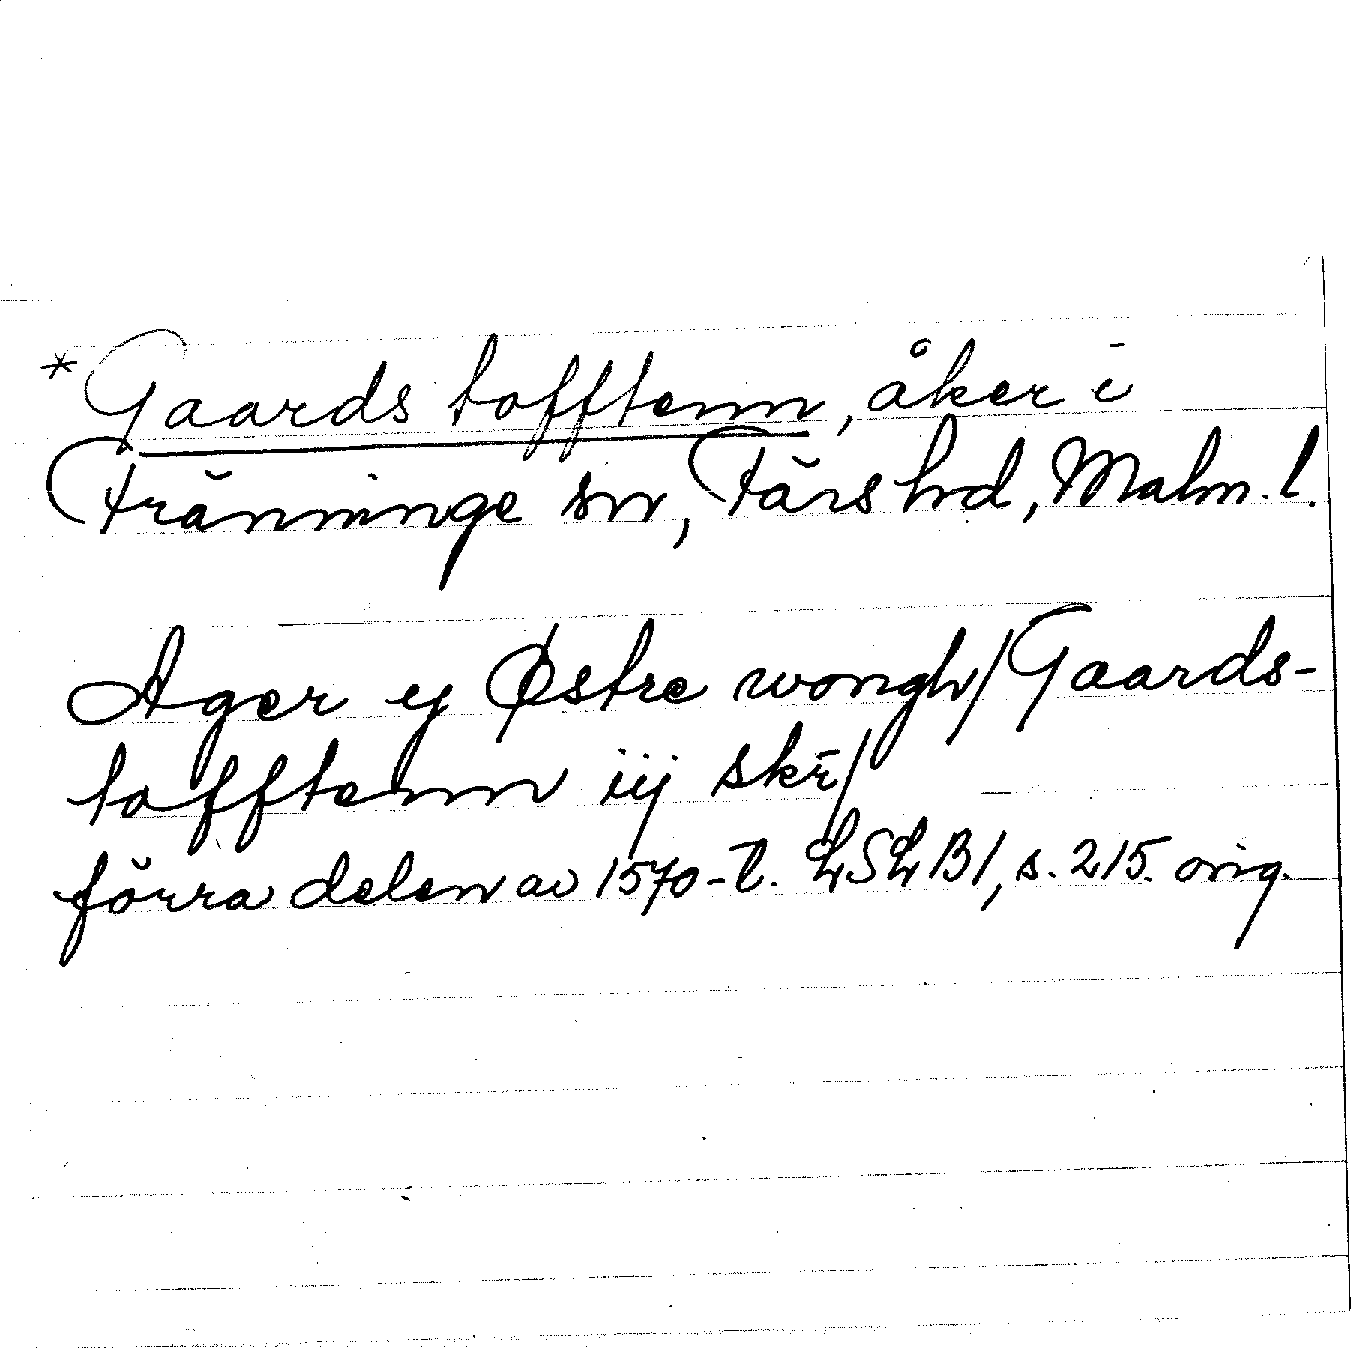 *Gaards tofftenn, åker i
Tränninge sn, Färs hrd, Malm. l.
Ager ij Østre wongh/Gaards-
tofftenn iij skr̄/
förra delen av 1570-t. LSLB1, s. 215. orig.